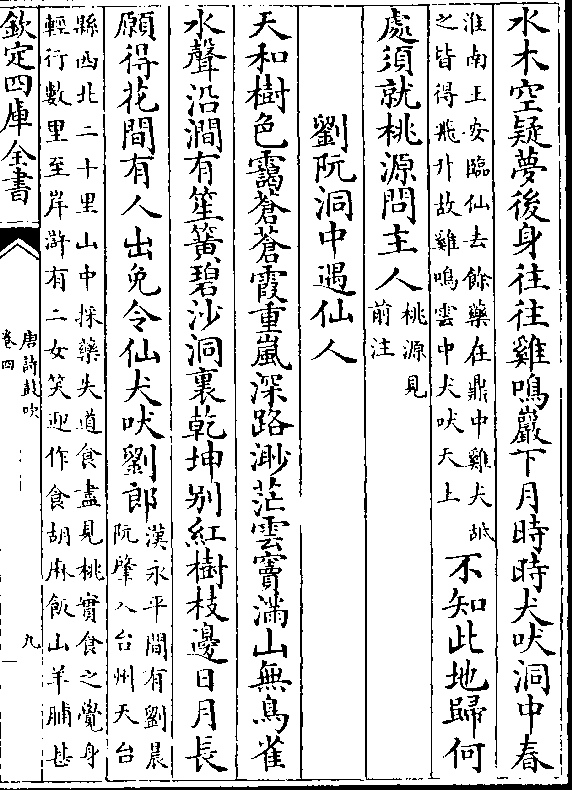 水木空疑夢後身往往雞鳴巖下月時時犬吠洞中春
淮南王安臨仙去餘藥在鼎中雞犬舐
之皆得飛升故雞鳴雲中犬吠天上
不知此地歸何
處須就桃源問主人
桃源見
前注
劉阮洞中遇仙人
天和樹色靄蒼蒼霞重嵐深路渺茫雲竇滿山無鳥雀
水聲沿澗有笙簧碧沙洞裏乾坤别紅樹枝邊日月長
願得花間有人出免令仙犬吠劉郎
漢永平間有劉晨
阮肇入台州天台
縣西北二十里山中採藥失道食盡見桃實食之覺身
輕行數里至岸滸有二女笑迎作食胡麻飯山羊脯甚
欽定四庫全書
唐詩鼓吹
卷四
九